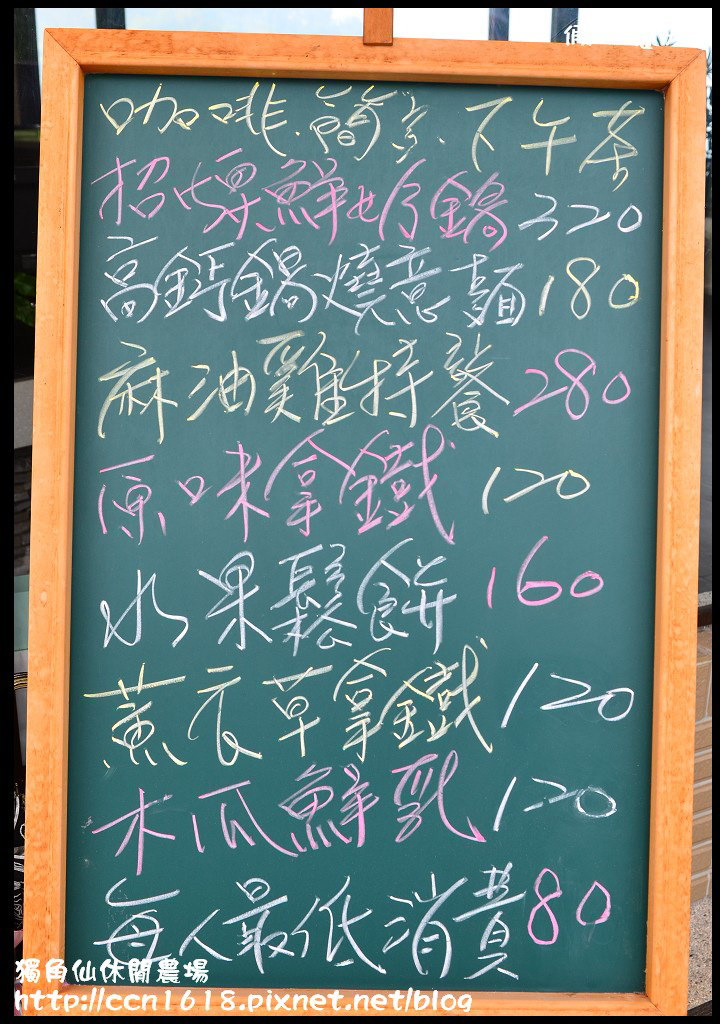 咖啡.簡字.下午茶
招牌鮮奶鍋 320
高鈣鍋燒意麵 180
麻油雞特餐 280
原味拿鐵 120
水果鬆餅 160
薰衣草拿鐵 120
木瓜鮮乳 120
每人最低消費 80
獨角仙休閒農場
http://ccn1618.pixnet.net/blog